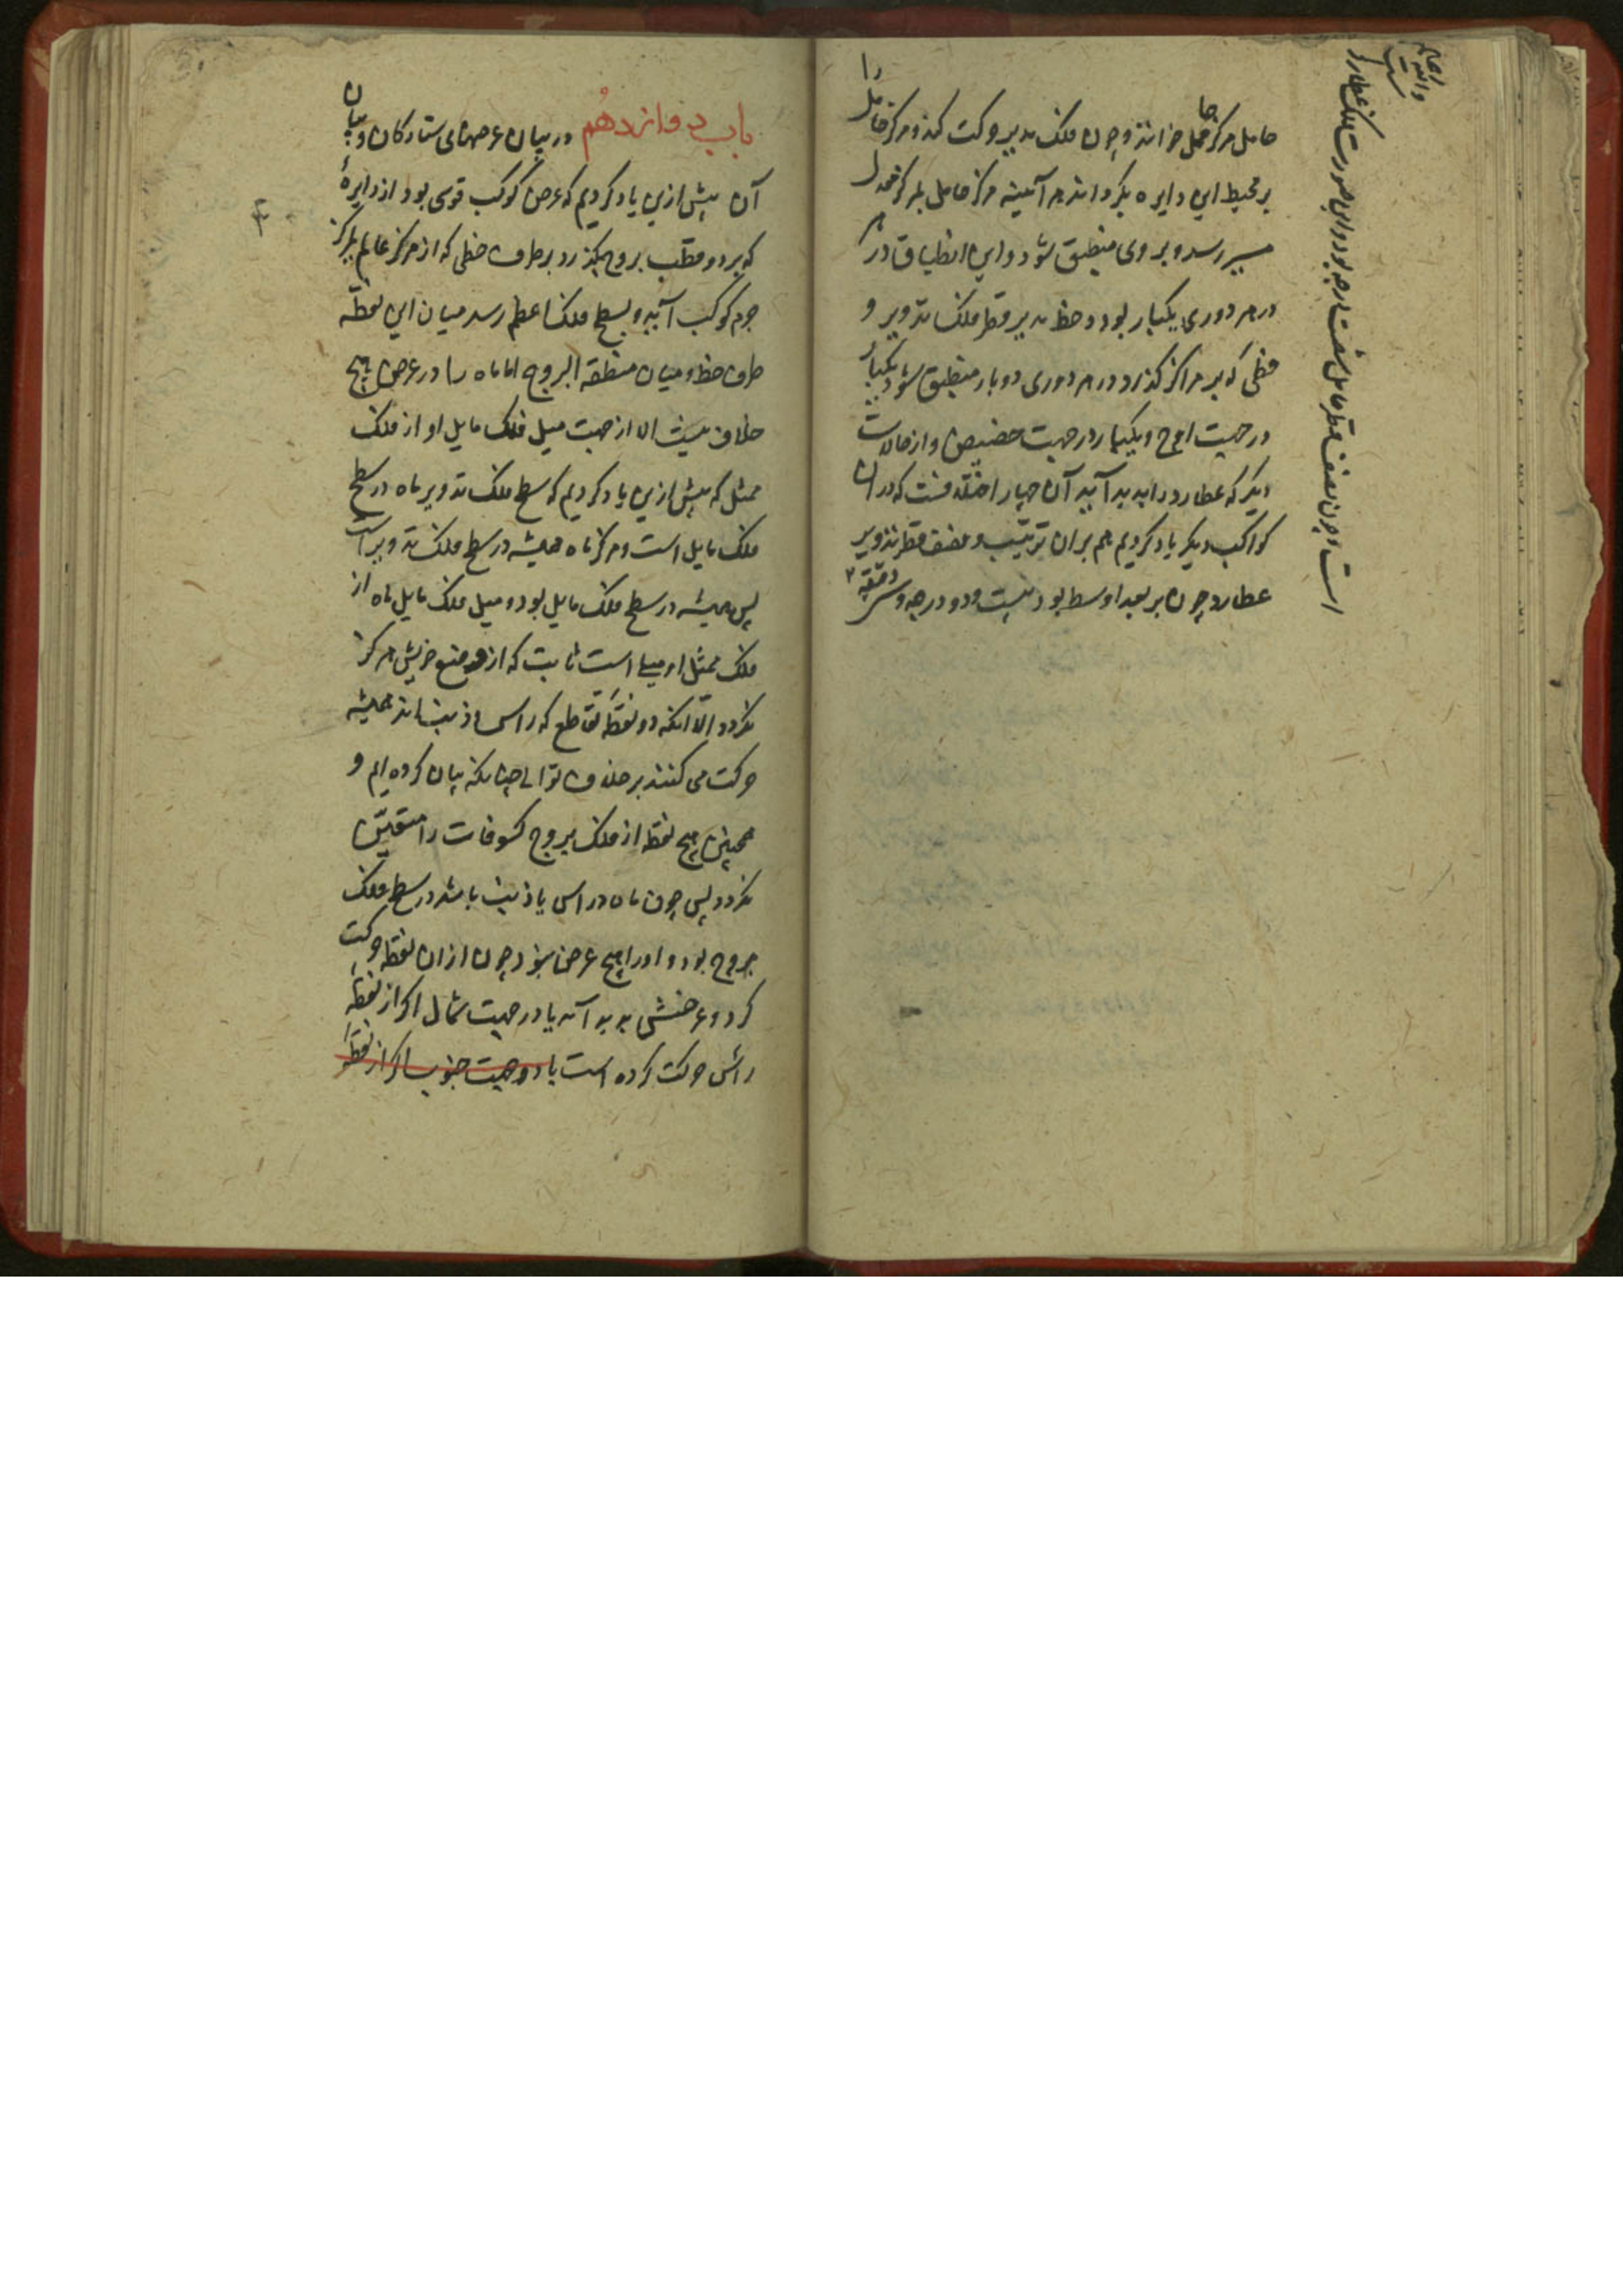 حامل مرکز حامل خوانند و چون فلک مدیر حرکت کند و مرکز حامل را
بر محیط این دایره بگرداند هر آینه مرکز حامل بمرکز معدل
مسیر رسد و بر وی منطبق شود و این انطباق در
در هر دوری یکبار بود و خط مدیر قطر فلک تدویر و
خطی که بر مراکز گذرد در هر دوری دو بار منطبق شود یکبار
در جهت اوج و یکبار در جهت حضیض و از حالات
دیگر که عطارد را پدید آید آن چهار اختلافست که در ان
کواکب دیگر یاد کردیم هم بران ترتیب و نصف قطر تدویر
عطارد چون بر بعد اوسط بود بیست و دو درجه و سی دقیقه
است و چون نصف قطر حامل شصت درجه بود و این صورت فلک عطارد
است والله اعلم
باب دوازدهم در بیان عرضهای ستارگان و بیان
آن پیش ازین یاد کردیم که عرض کوکب قوسی بود از دایرهٔ
که بر دو قطب بروج بگذرد بر طرف خطی که از مرکز عالم بمرکز
جرم کوکب آید و بسطح فلک اعظم رسد میان این نقطه
طرف خط و میان منطقة البروج اما ماه را در عرض هیچ
خلاف نیست الا از جهت میل فلک مایل او از فلک
ممثل که پیش ازین یاد کردیم که سطح فلک تدویر ماه در سطح
فلک مایل است و مرکز ماه همیشه در سطح فلک تدویر است
پس همیشه در سطح فلک مایل بود و میل فلک مایل ماه از
فلک ممثل او میلی است ثابت که از وضع خویش هرگز
نگردد الّا انکه دو نقطهٔ تقاطع که راس و ذنب اند همیشه
حرکت می کنند بر خلاف توالی چنانکه بیان کرده ایم و
همچنین هیچ نقطه از فلک بروج کسوفات را متعیّن
نگردد پس چون ماه در راس یا ذنب باشد در سطح فلک
بروج بود و او را هیچ عرض نبود چون ازان نقطه حرکت
کرد و عرضش پدید آمد یا در جهت شمال اگر از نقطهٔ
راس حرکت کرده است یا در جهت جنوب اگر از نقطهٔ